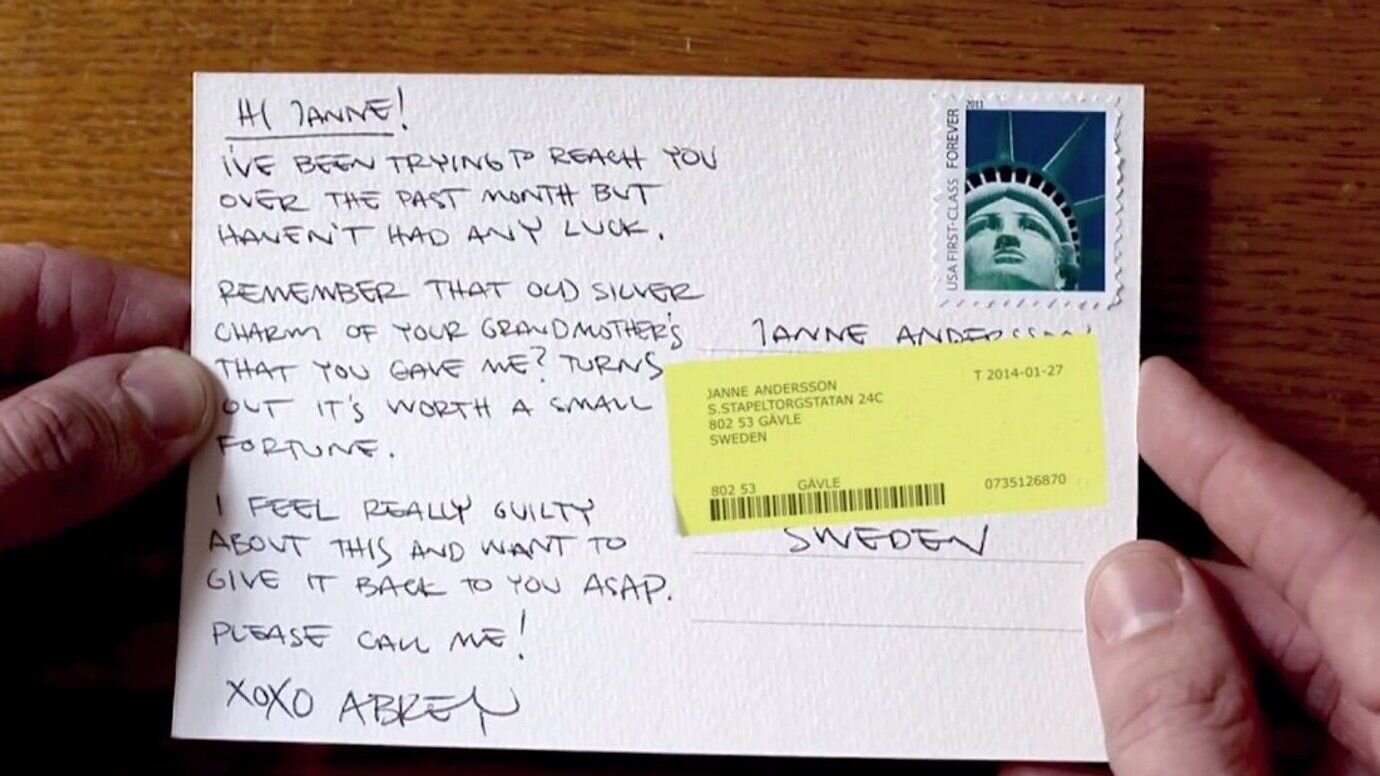 HI JANNE!
I'VE BEEN TRYING TO REACH YOU
OVER THE PAST MONTH BUT
HAVEN'T HAD ANY LUCK.
REMEMBER THAT OLD SILVER
CHARM OF YOUR GRANDMOTHER'S
THAT YOU GAVE ME? TURNS
OUT IT'S WORTH A SMALL
FORTUNE.
I FEEL REALLY GUILTY
ABOUT THIS AND WANT TO
GIVE IT BACK TO YOU ASAP.
PLEASE CALL ME!
XOXO ABREN
2011
USA FIRST-CLASS FOREVER
JANNE ANDERSSON
T 2014-01-27
JANNE ANDERSSON
S.STAPELTORGSTATAN 24C
802 53 GÄVLE
SWEDEN
802 53 GÄVLE
0735126870
SWEDEN